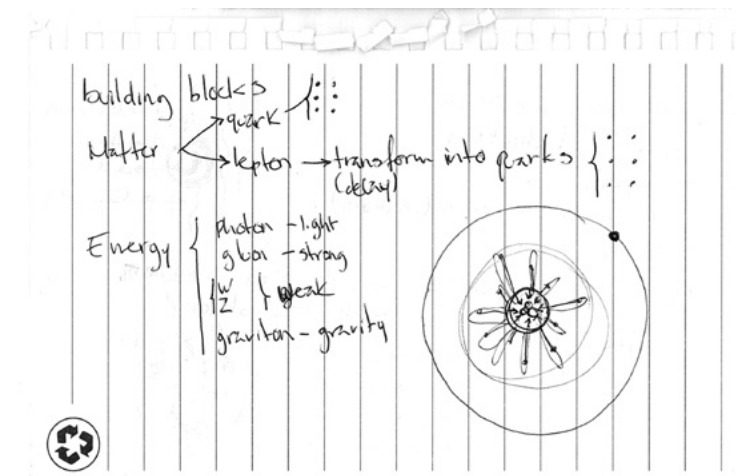 building blocks
quark
Matter
lepton → transform into qarks
(decay)
Energy
photon - light
gluon - strong
W
Z
weak
graviton - gravity